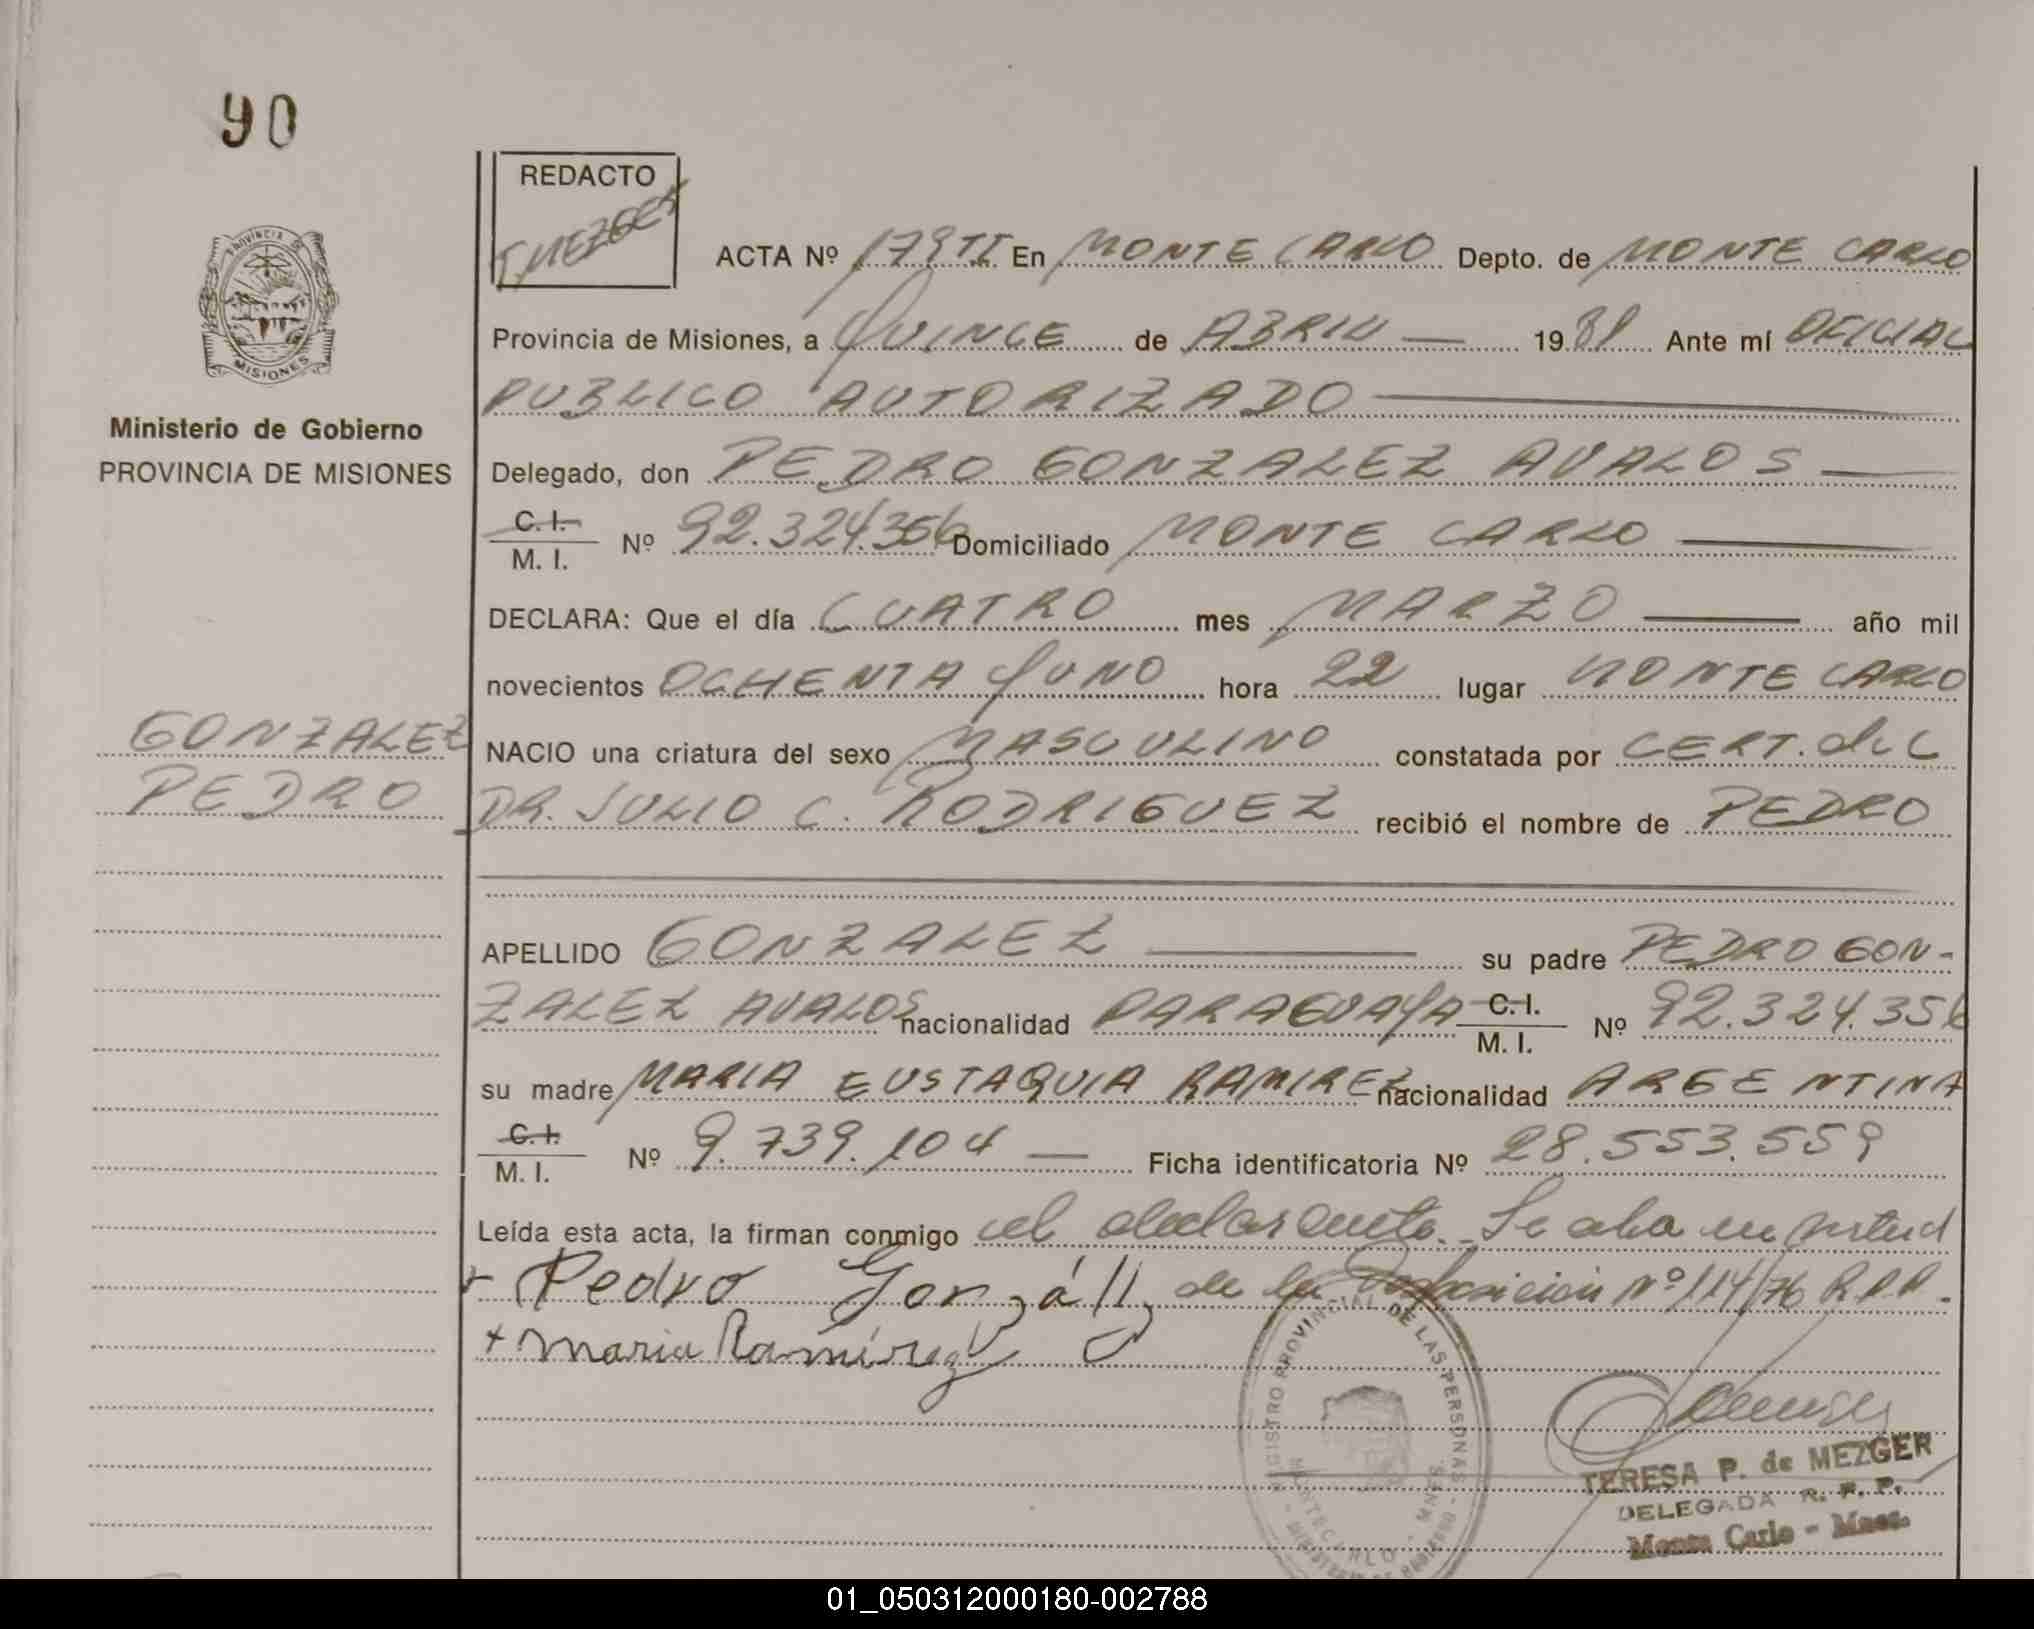 90
REDACTO
T. MEZGER
PROVINCIA DE
MISIONES
Ministerio de Gobierno
PROVINCIA DE MISIONES
GONZALEZ
PEDRO
ACTA Nº 179 TI En MONTE CARLO Depto. de MONTE CARLO
Provincia de Misiones, a QUINCE de ABRIL — 1981 Ante mí OFICIAL
PUBLICO AUTORIZADO —
Delegado, don PEDRO GONZALEZ AVALOS —
C. I.
M. I. Nº 92.324.356 Domiciliado MONTE CARLO —
DECLARA: Que el día CUATRO mes MARZO — año mil
novecientos OCHENTA Y UNO hora 22 lugar MONTE CARLO
NACIO una criatura del sexo MASCULINO constatada por CERT. del
DR. JULIO C. RODRIGUEZ recibió el nombre de PEDRO
APELLIDO GONZALEZ — su padre PEDRO GON-
ZALEZ AVALOS nacionalidad PARAGUAYA C.I. M. I. Nº 92.324.356
su madre MARIA EUSTAQUIA RAMIREZ nacionalidad ARGENTINA
C. I.
M. I. Nº 9.739.104 — Ficha identificatoria Nº 28.553.559
Leída esta acta, la firman conmigo el declarante. Se aba en virtud
+ Pedro Gonzáll de la Disposicion Nº 114/76 R.P.P.
+ maria Ramírez
REGISTRO PROVINCIAL DE LAS PERSONAS
MONTECARLO - MNES.
MINISTERIO DE GOBIERNO
TERESA P. de MEZGER
DELEGADA R. P. P.
Monte Carlo - Mnes.
01_050312000180-002788